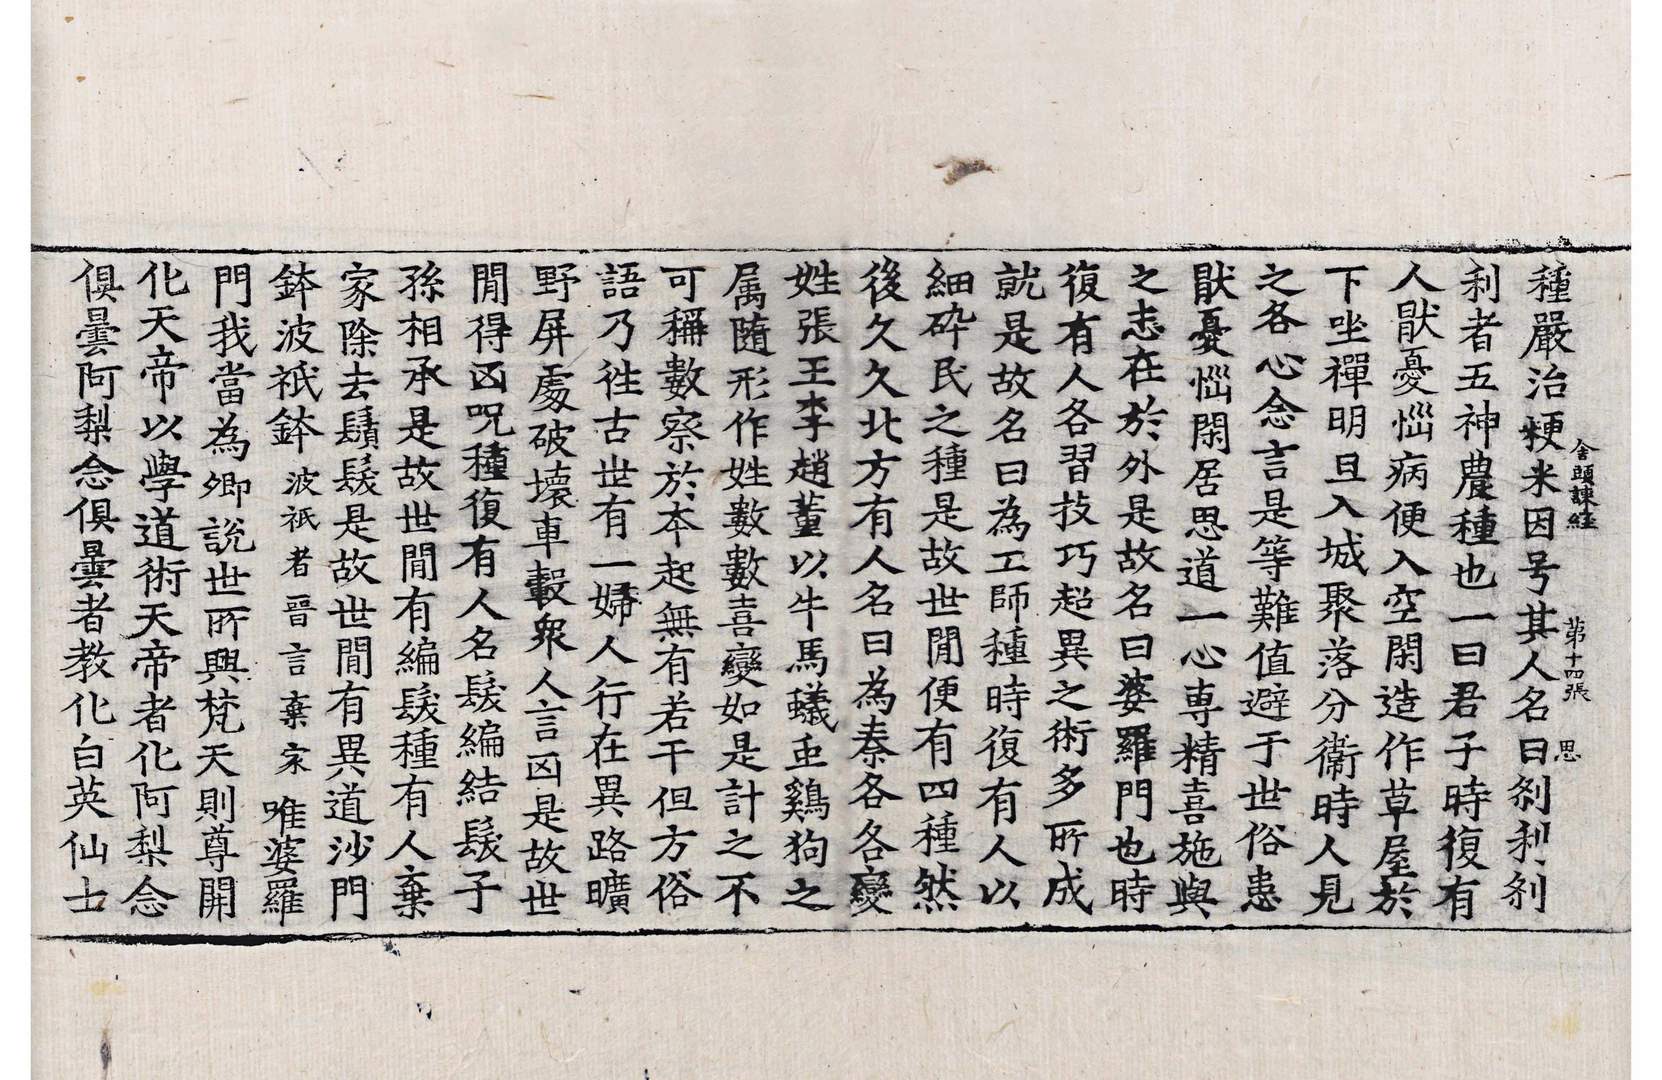 種嚴治粳米因号其人名曰刹利刹
舍頭諫経 第十四張 思
利者五神農種也一曰君子時復有
人猒憂惱病便入空閑造作草屋於
下坐禪明旦入城聚落分衞時人見
之各心念言是等難值避于世俗恚
猒憂惱閑居思道一心専精喜施與
之志在於外是故名曰婆羅門也時
復有人各習技巧超異之術多所成
就是故名曰為工師種時復有人以
細碎民之種是故世閒便有四種然
後久久久北方有人名曰為秦各各變
姓張王李趙董以牛馬蟻𧈧鷄狗之
属隨形作姓數數喜變如是計之不
可稱數察於本起無有若干但方俗
語乃徃古世有一婦人行在異路曠
野屏處破壞車轂衆人言凶是故世
閒得凶呪種復有人名髮編結髮子
孫相承是故世閒有編髮種有人棄
家除去鬚髮是故世閒有異道沙門
鉢波袛鉢波袛者晋言棄家唯婆羅
門我當為卿說世所興梵天則尊開
化天帝以學道術天帝者化阿梨念
俱曇阿梨念俱曇者教化白英仙士